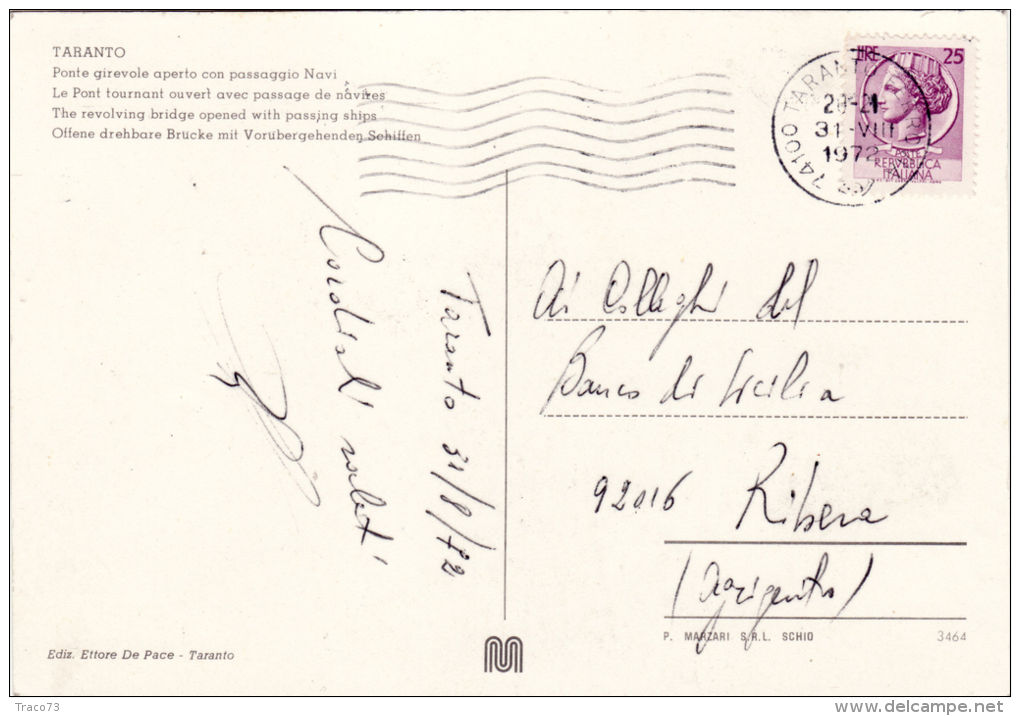 TARANTO
Ponte girevole aperto con passaggio Navi
Le Pont tournant ouvert avec passage de navires
The revolving bridge opened with passing ships
Offene drehbare Brücke mit Vorübergehenden Schiffen
LIRE 25
74100 TARANTO
31-VIII
1972
REPVBBLICA
ITALIANA
Taranto 31/8/72
Cordiali saluti
Ai Colleghi del
Banco di Sicilia
92016 Ribera
(Agrigento)
P. MARZARI S.R.L. SCHIO 3464
Ediz. Ettore De Pace - Taranto
Traco73